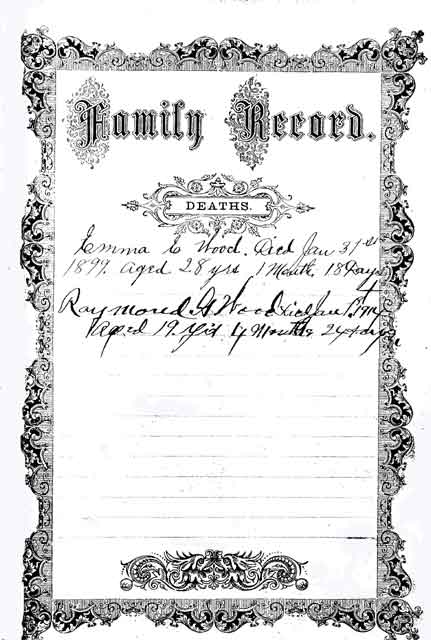 Family Record.
DEATHS.
Emma E Wood. Died Jan 31st
1899. aged 28 yrs 1 Month 18 Days
Raymond Wood Died
Aged 19 Yrs Months 24 days